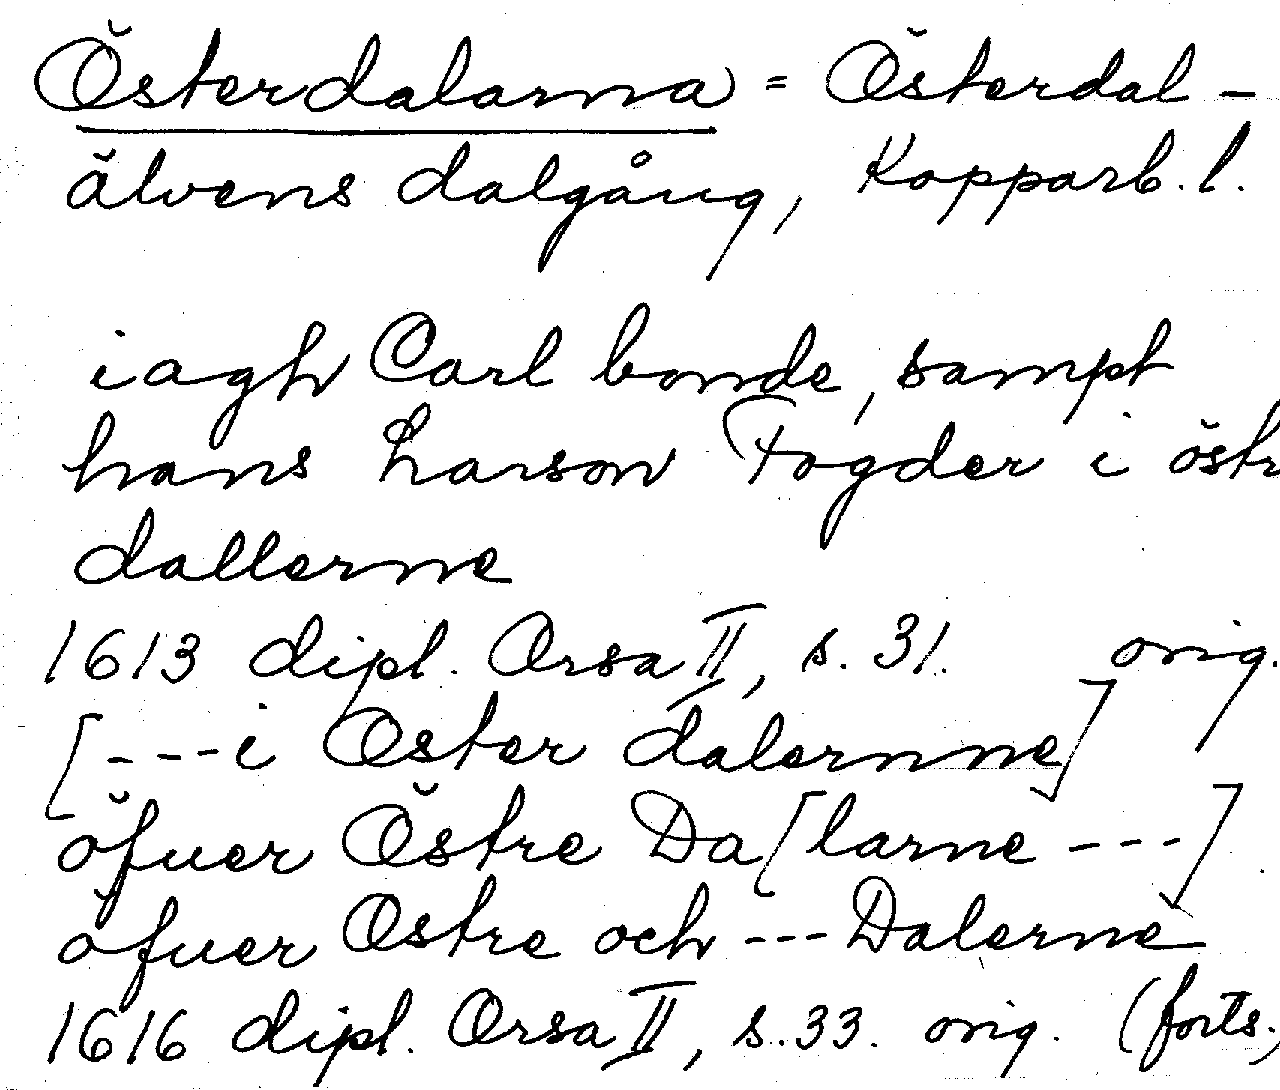 Österdalarna = Österdal-
älvens dalgång, Kopparb. l.
iagh Carl bonde, sampt
hans Larson Fogder i östr
dallerne
1613 dipl. Orsa II, s. 31. orig.
[---i Öster dalernne]
öfuer Östre Da[larne ---]
öfuer Östre och --- Dalerne
1616 dipl. Orsa II, s. 33. orig. (forts.)